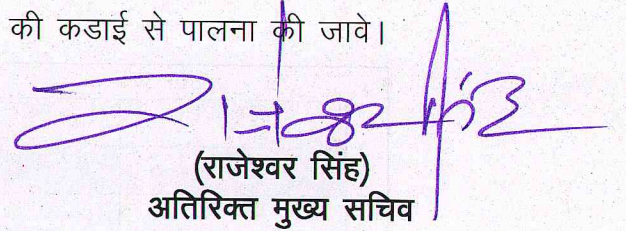 की कडाई से पालना की जावे।
(राजेश्वर सिंह)
अतिरिक्त मुख्य सचिव